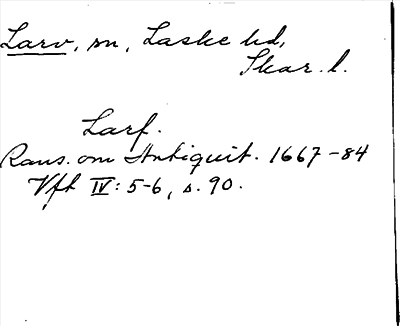 Larv, sn, Laske hd,
Skar. l.
Larf.
Rans. om Antiquit. 1667-84
Vft IV: 5-6, s. 90.